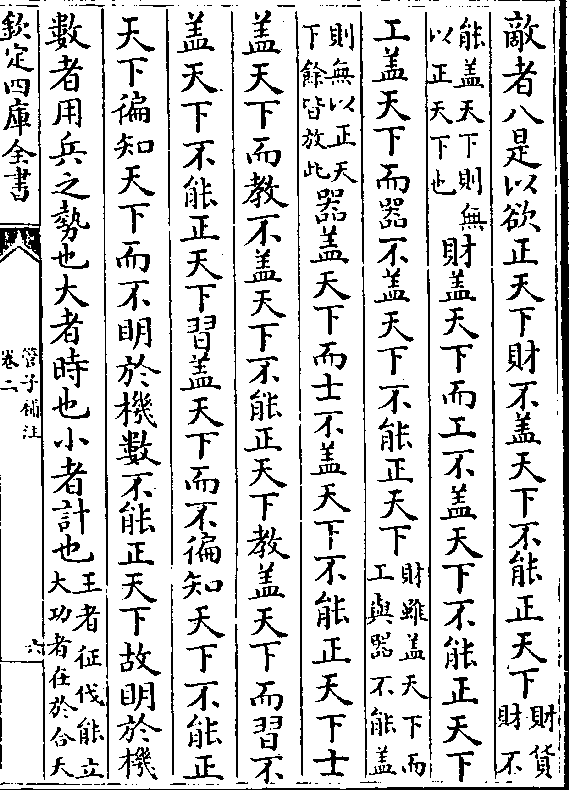 敵者八是以欲正天下財不盖天下不能正天下財貨財不
能盖天下則無以正天下也財盖天下而工不盖天下不能正天下
工盖天下而器不盖天下不能正天下財雖盖天下而工與器不能盖
則無以正天下餘皆放此器盖天下而士不盖天下不能正天下士
盖天下而教不盖天下不能正天下教盖天下而習不
盖天下不能正天下習盖天下而不徧知天下不能正
天下徧知天下而不明於機數不能正天下故明於機
數者用兵之勢也大者時也小者計也王者征伐能立大功者在於合天
欽定四庫全書
管子補注
卷二
六